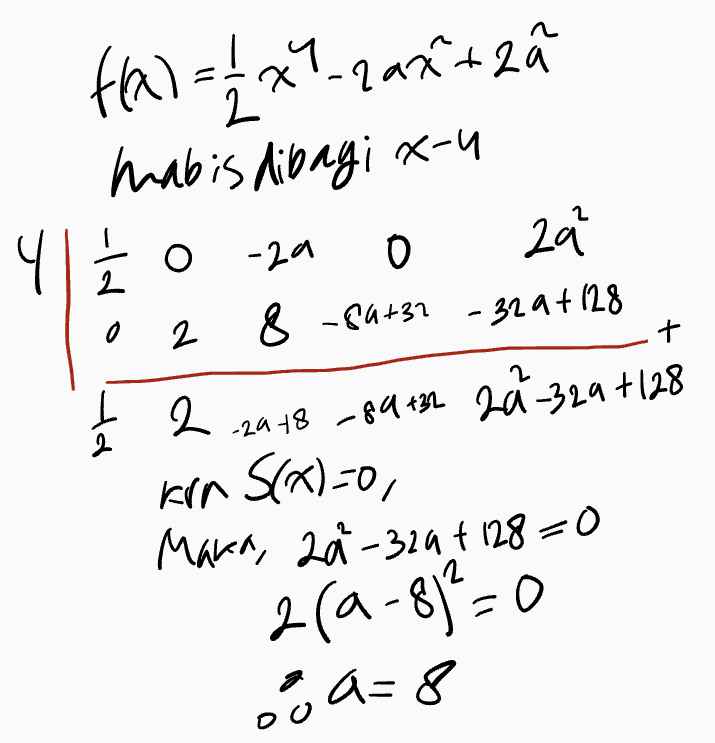 f(x) = 1/2 x⁴ - 2ax² + 2a²
habis dibagi x-4
4 | 1/2 0 -2a 0 2a²
0 2 8 -8a+32 -32a+128 +
1/2 2 -2a+8 -8a+32 2a²-32a+128
krn S(x)=0,
Maka, 2a²-32a+128=0
2(a-8)²=0
∴ a=8